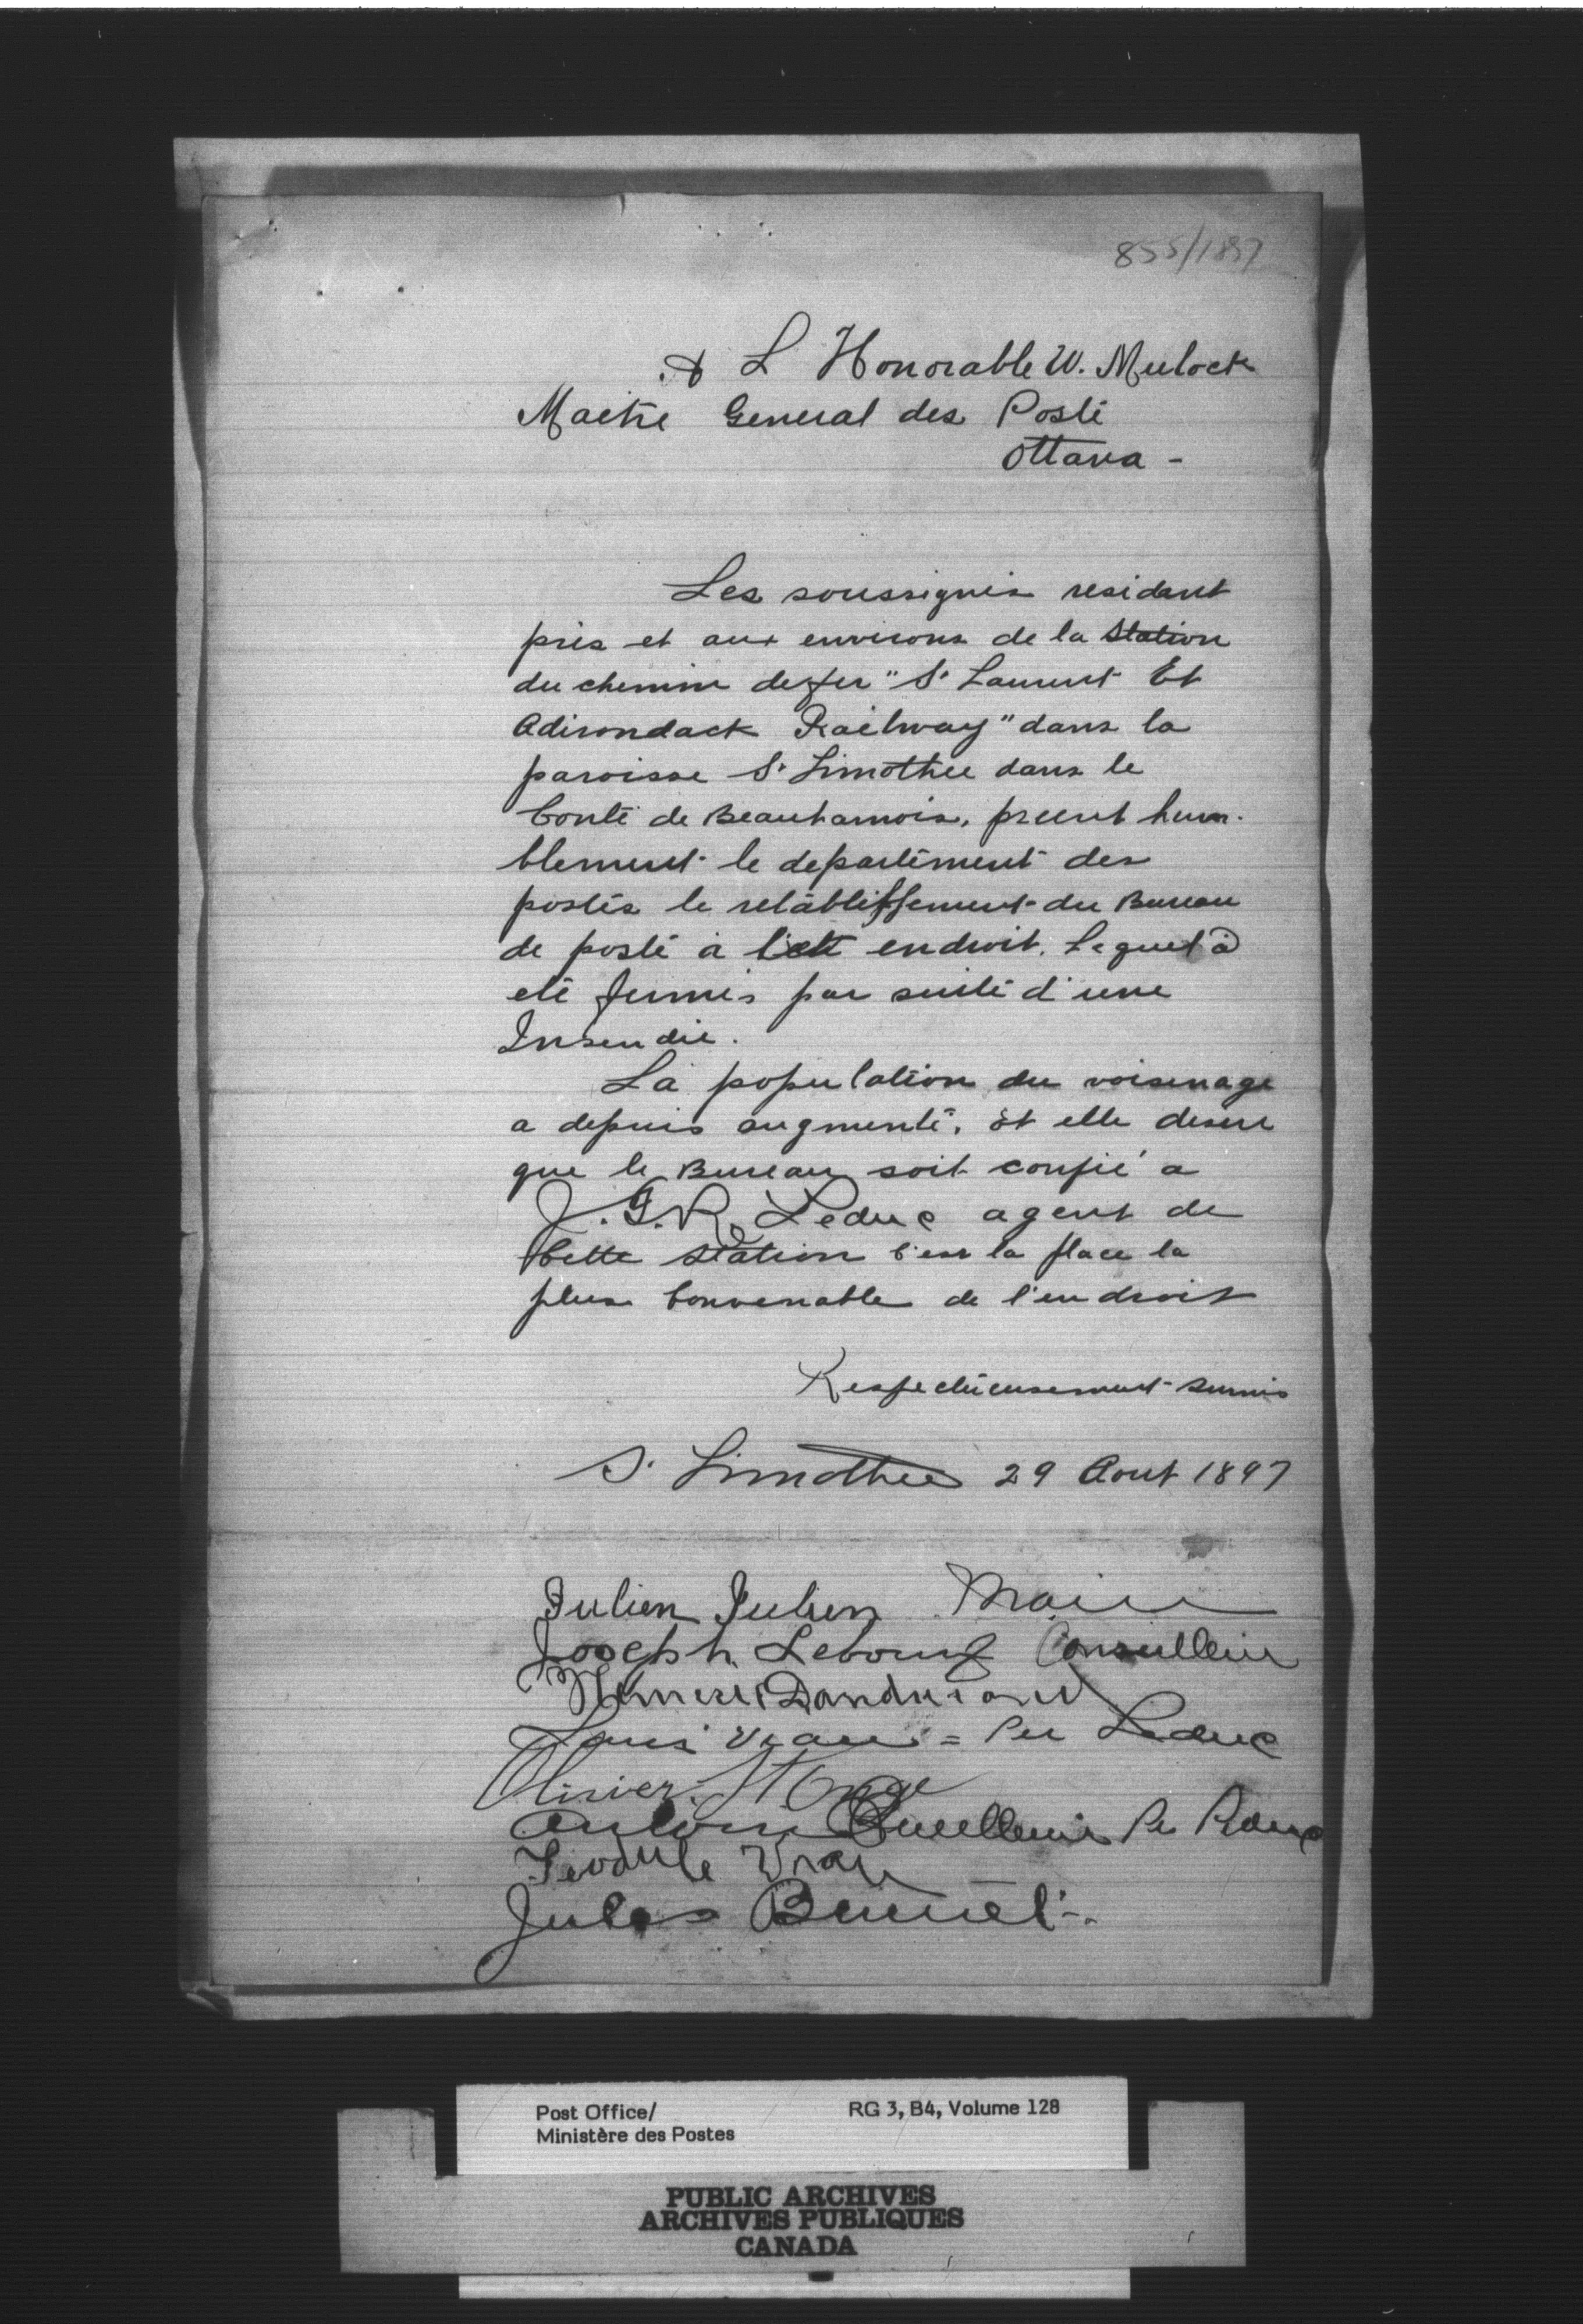 855/1897
A L Honorable W. Mulock
Maitre General des Poste
Ottawa -
Les soussignés residant
près et aux environs de la Station
du chemin de fer "St Laurent Et
Adirondack Railway" dans la
paroisse St Timothee dans le
Conté de Beauharnois, prient hum-
blement le departement des
postes le retablissement du Bureau
de poste à Cett endroit. Lequel à
eté fermés par suite d'une
Insendie.
La population du voisinage
a depuis augmenté, et elle desire
que le Bureau soit confié a
J. G. R. Leduc agent de
Cette Station C'est la place la
plus Convenable de l'endroit
Respectueusement sumis
St Timothee 29 Aout 1897
Julien Julien Maire
Joseph Lebouf Conseiller
Dandurand
Louis Vrau = Per Leduc
Olivier St Onge
Antoine Per Leduc
Teodule Vrau
Jules Brunet
Post Office/
Ministère des Postes
RG 3, B4, Volume 128
PUBLIC ARCHIVES
ARCHIVES PUBLIQUES
CANADA